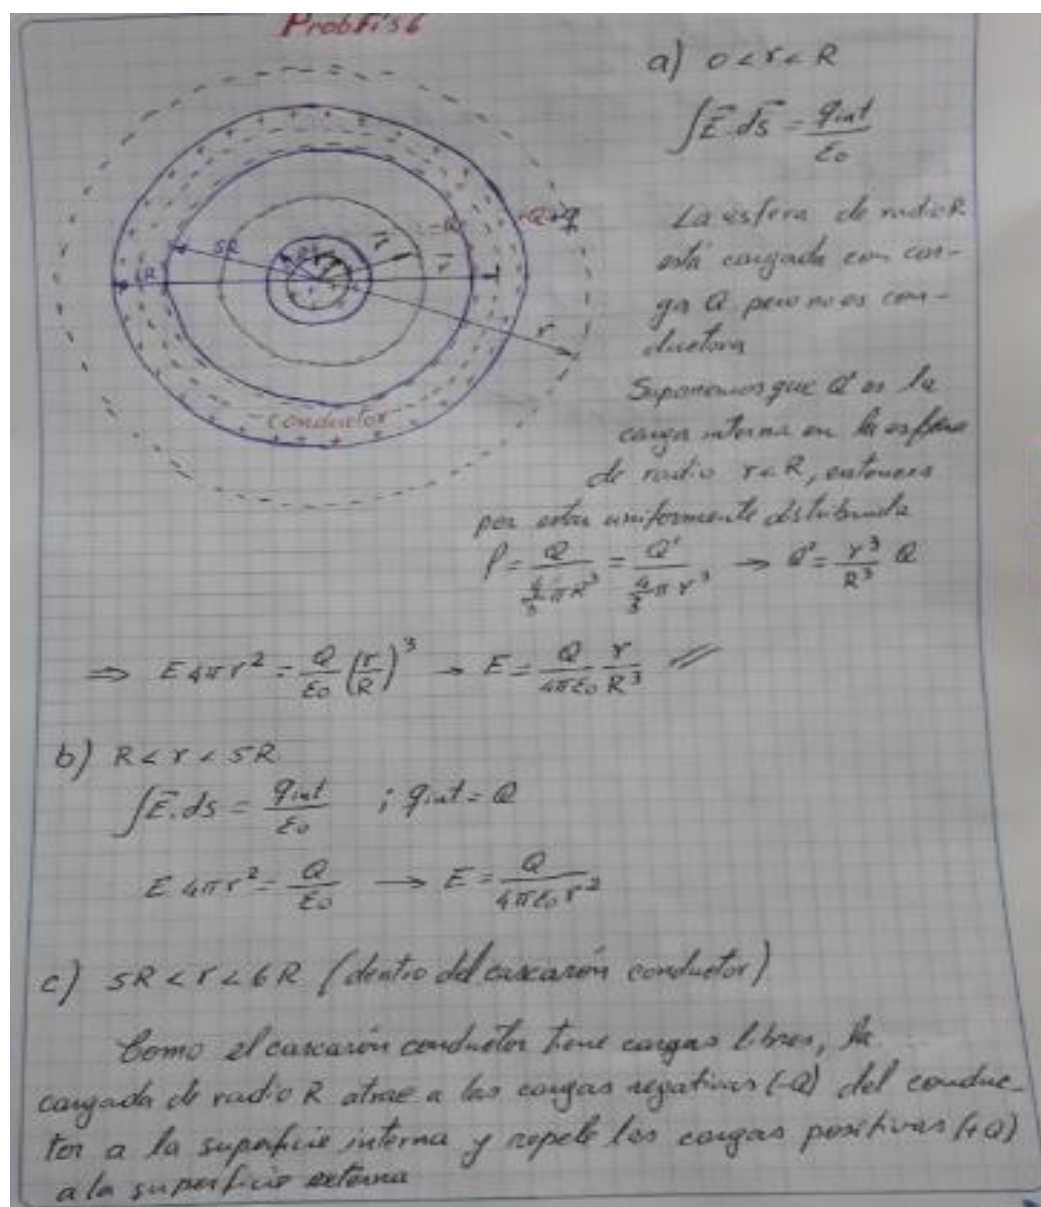 ProbFis6
a) 0 < r < R
∫E⃗.dS⃗ = qint/ε0
La esfera de radio R
está cargada con car-
ga Q pero no es con-
ductora
Suponemos que Q' es la
carga interna en la esfera
de radio r < R, entonces
por estar uniformemente distribuida
ρ = Q/(4/3 π R³) = Q'/(4/3 π r³) → Q' = r³/R³ Q
⇒ E 4πr² = Q/ε0 (r/R)³ → E = Q/4πε0 r/R³
b) R < r < 5R
∫E⃗.ds = qint/ε0 ; qint = Q
E 4πr² = Q/ε0 → E = Q/4πε0r²
c) 5R < r < 6R (dentro del cascarón conductor)
Como el cascarón conductor tiene cargas libres, la
cargada de radio R atrae a las cargas negativas (-Q) del conduc-
tor a la superficie interna y repele las cargas positivas (+Q)
a la superficie externa
5R
6R
R
r
r
r
-Q
conductor